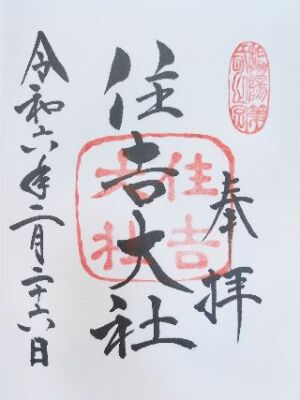 奉拝
住吉大社
住吉
大社
令和六年二月二十六日